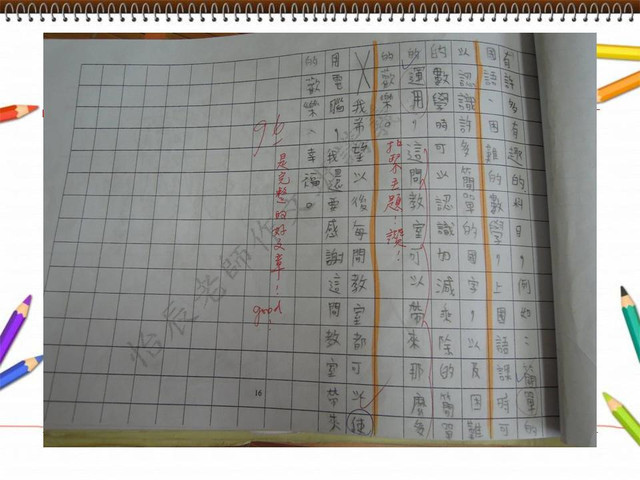 有許多有趣的科目，例如：簡單的
國語、困難的數學，上國語課時可
以認識許多簡單的國字，以及困難
的數學時可以認識切減乘除的簡單
的運用，這間教室可以帶來那麼多
的歡樂。
扣緊主題！讚！
我希望以後每間教室都可以使
用電腦，我還要感謝這間教室帶來
的歡樂、幸福。
96
是完整的好文章！good!
16
怡辰老師作